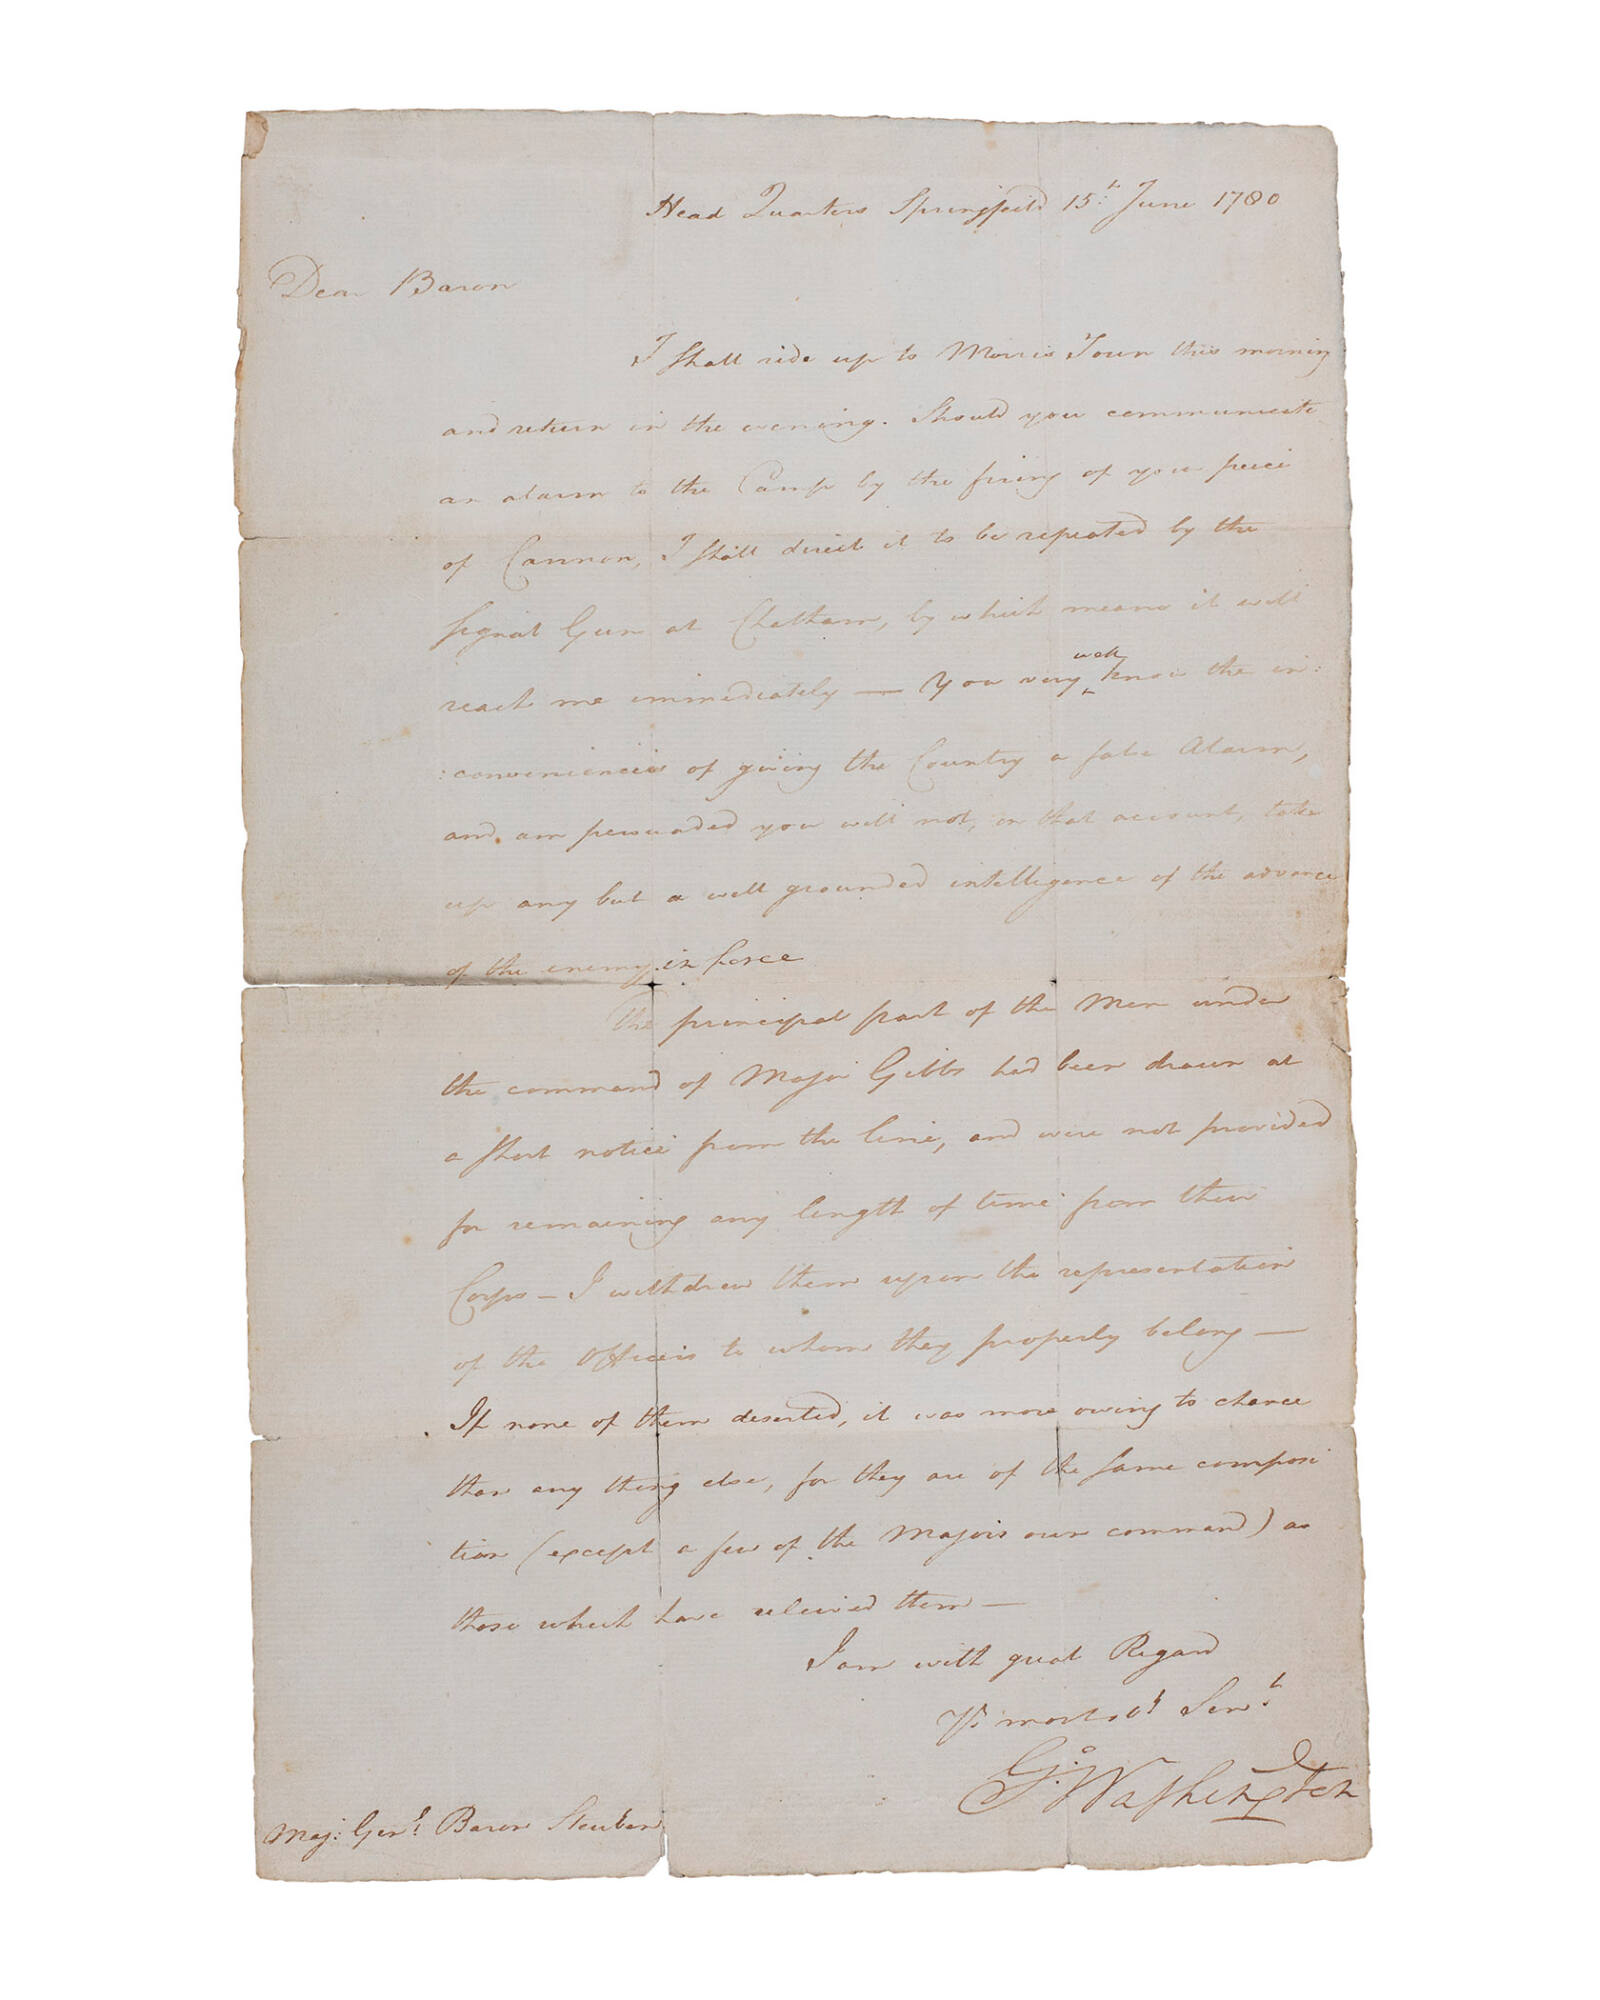 Head Quarters Springfeild 15.th June 1780
Dear Baron
I shall ride up to Morris Town this morning
and return in the evening. Should you communicate
an alarm to the Camp by the firing of your peice
of Cannon, I shall direct it to be repeated by the
signal Gun at Chatham, by which means it will
reach me immediately — You very well know the in:
:conveniencies of giving the Country a false Alarm,
and am persuaded you will not, on that account, take
up any but a well grounded intelligence of the advance
of the enemy in force
The principal part of the Men under
the command of Major Gibbs had been drawn at
a short notice from the line, and were not provided
for remaining any length of time from their
Corps — I withdrew them upon the representation
of the Officers to whom they properly belong —
If none of them deserted, it was more owing to chance
than any thing else, for they are of the same composi
tion (except a few of the Majors own command) as
those which have releived them —
I am with great Regard
Yr. most obt Servt.
Go: Washington
Maj: Genl. Baron Steuben